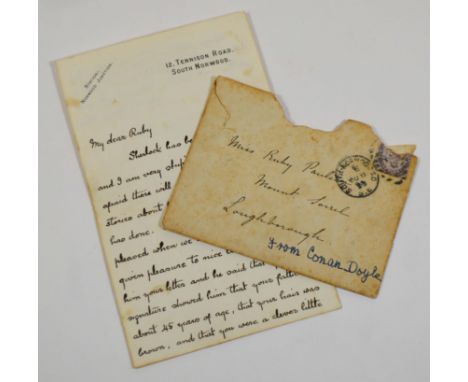 STATION:
NORWOOD JUNCTION.
12, TENNISON ROAD,
SOUTH NORWOOD.
My dear Ruby
Sherlock has be
and I am very
afraid there will
stories about
has done.
pleased when we
given pleasure to nice
him your letter and he said that
signature showed him that your
about 45 years of age, that your hair was
brown, and that you were a clever little
Miss Ruby
Mount Sorrel
Loughborough
From Conan Doyle